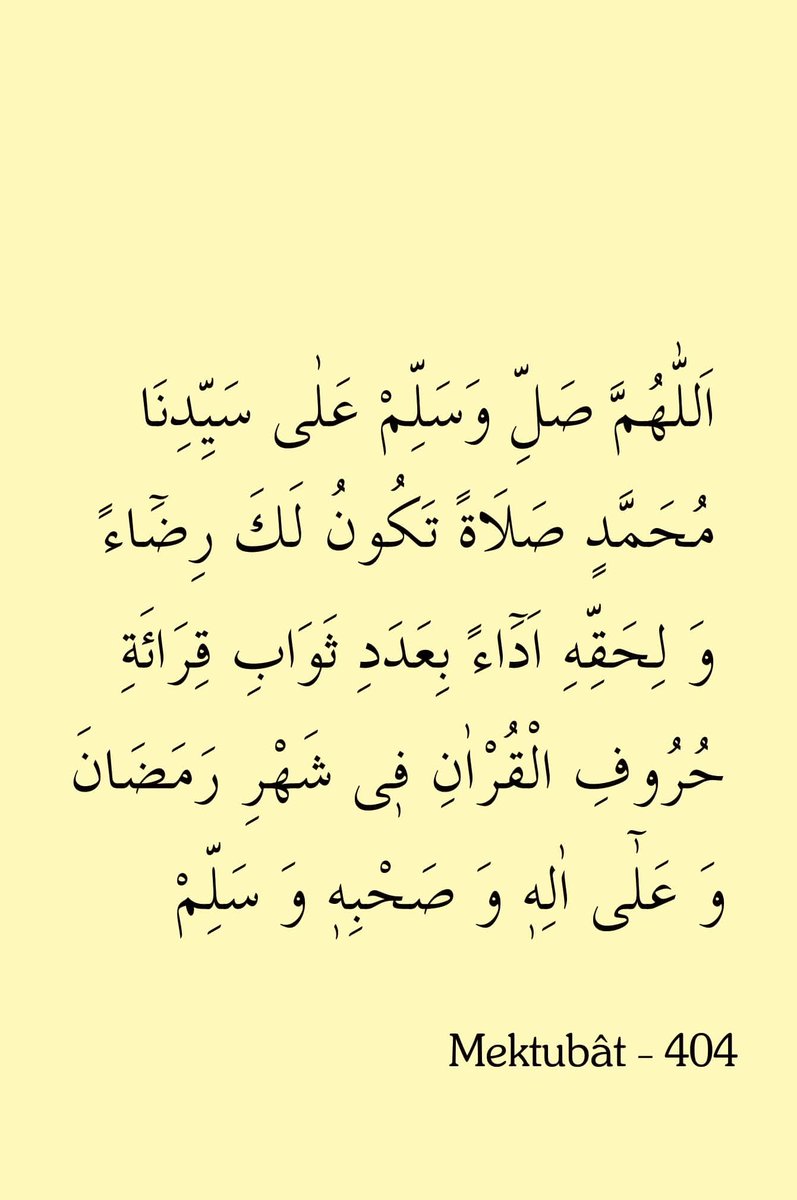 اَللّٰهُمَّ صَلِّ وَسَلِّمْ عَلٰى سَيِّدِنَا
مُحَمَّدٍ صَلَاةً تَكُونُ لَكَ رِضَٓاءً
وَ لِحَقِّهِ اَدَٓاءً بِعَدَدِ ثَوَابِ قِرَائَةِ
حُرُوفِ الْقُرْاٰنِ فٖى شَهْرِ رَمَضَانَ
وَ عَلٰٓى اٰلِهٖ وَ صَحْبِهٖ وَ سَلِّمْ
Mektubât - 404